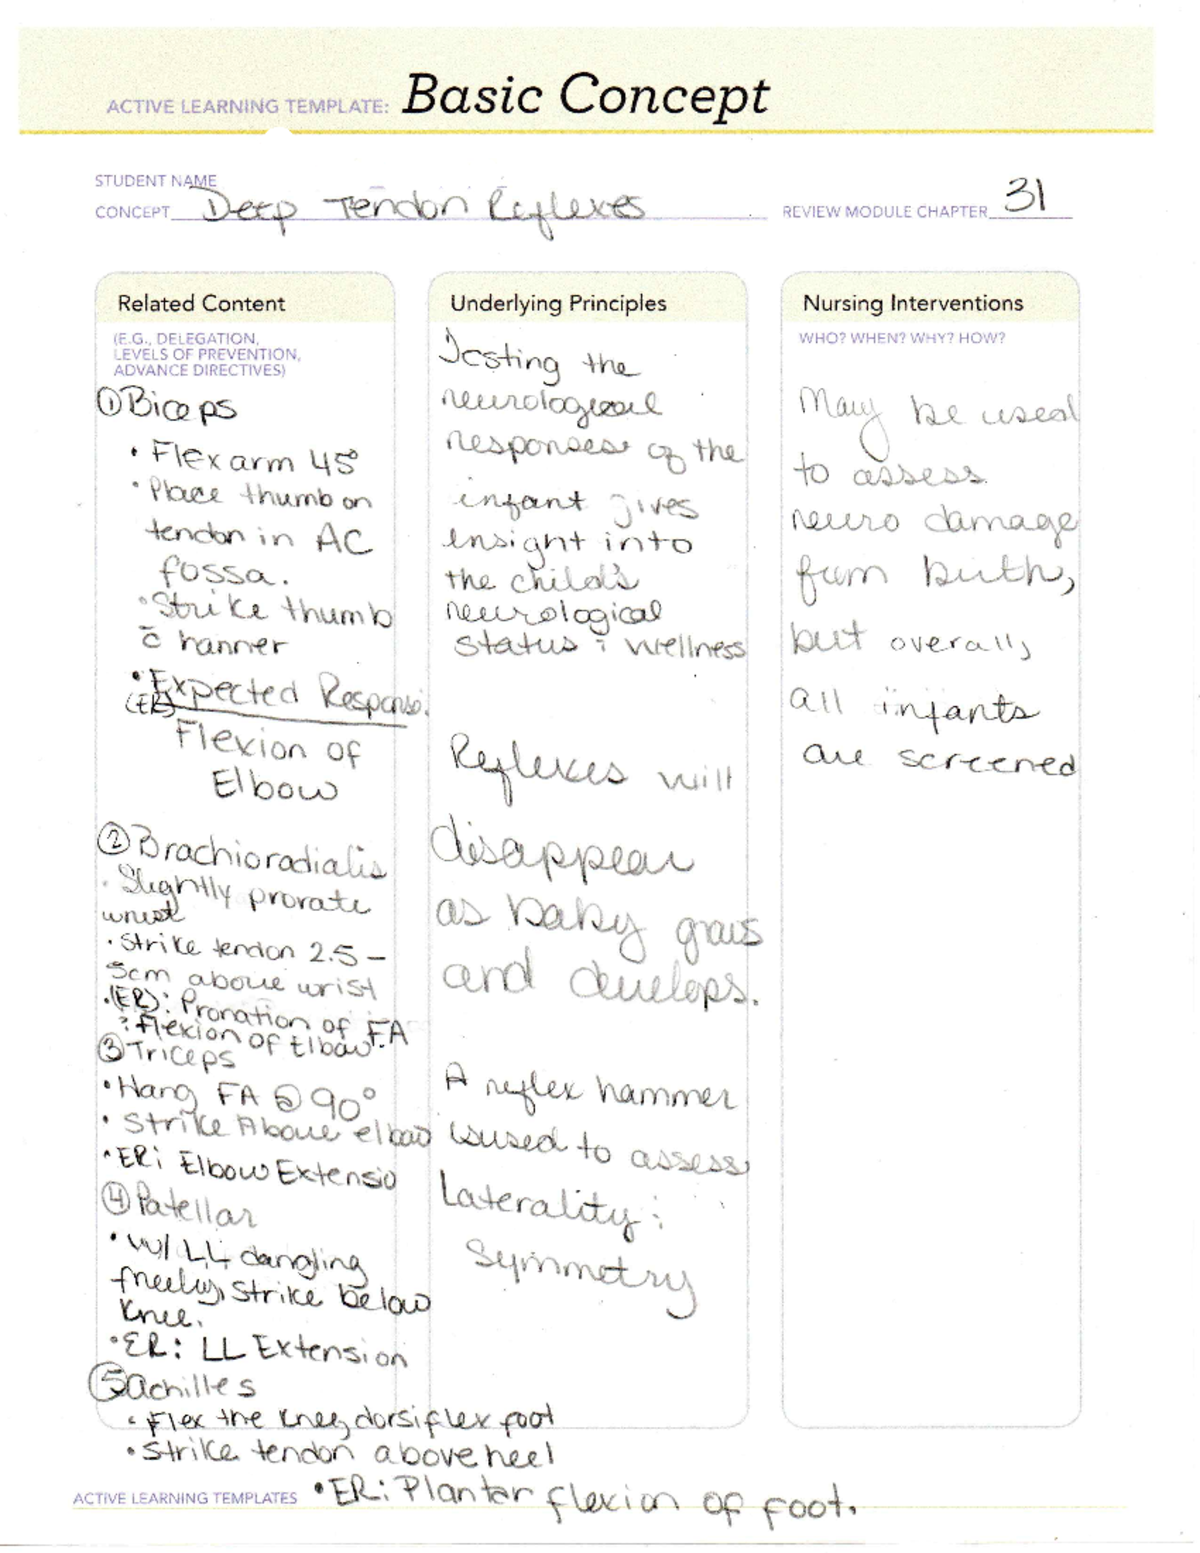 ACTIVE LEARNING TEMPLATE: Basic Concept
STUDENT NAME
CONCEPT Deep Tendon Reflexes
REVIEW MODULE CHAPTER 31
Related Content
(E.G., DELEGATION,
LEVELS OF PREVENTION,
ADVANCE DIRECTIVES)
① Biceps
• Flex arm 45°
• Place thumb on
tendon in AC
fossa.
• Strike thumb
c̄ hanner
• Expected Response:
(ER)
Flexion of
Elbow
② Brachioradialis
• Slightly pronate
wrist
• Strike tendon 2.5 –
5cm above wrist
• (ER): Pronation of FA
: Flexion of Elbow.
③ Triceps
• Hang FA @ 90°
• Strike Above elbow
• ER: Elbow Extensio
④ Patellar
• W/ LL dangling
freely, Strike below
Knee.
• ER: LL Extension
⑤ Achilles
• Flex the knee, dorsiflex foot
• Strike tendon above heel
• ER: Planter flexion of foot.
Underlying Principles
Testing the
neurological
responses of the
infant gives
ensight into
the child's
neurological
status : wellness
Reflexes will
disappear
as baby grows
and develops.
A reflex hammer
is used to assess
Laterality :
Symmetry
Nursing Interventions
WHO? WHEN? WHY? HOW?
May be used
to assess
neuro damage
from birth,
but overall,
all infants
are screened
ACTIVE LEARNING TEMPLATES